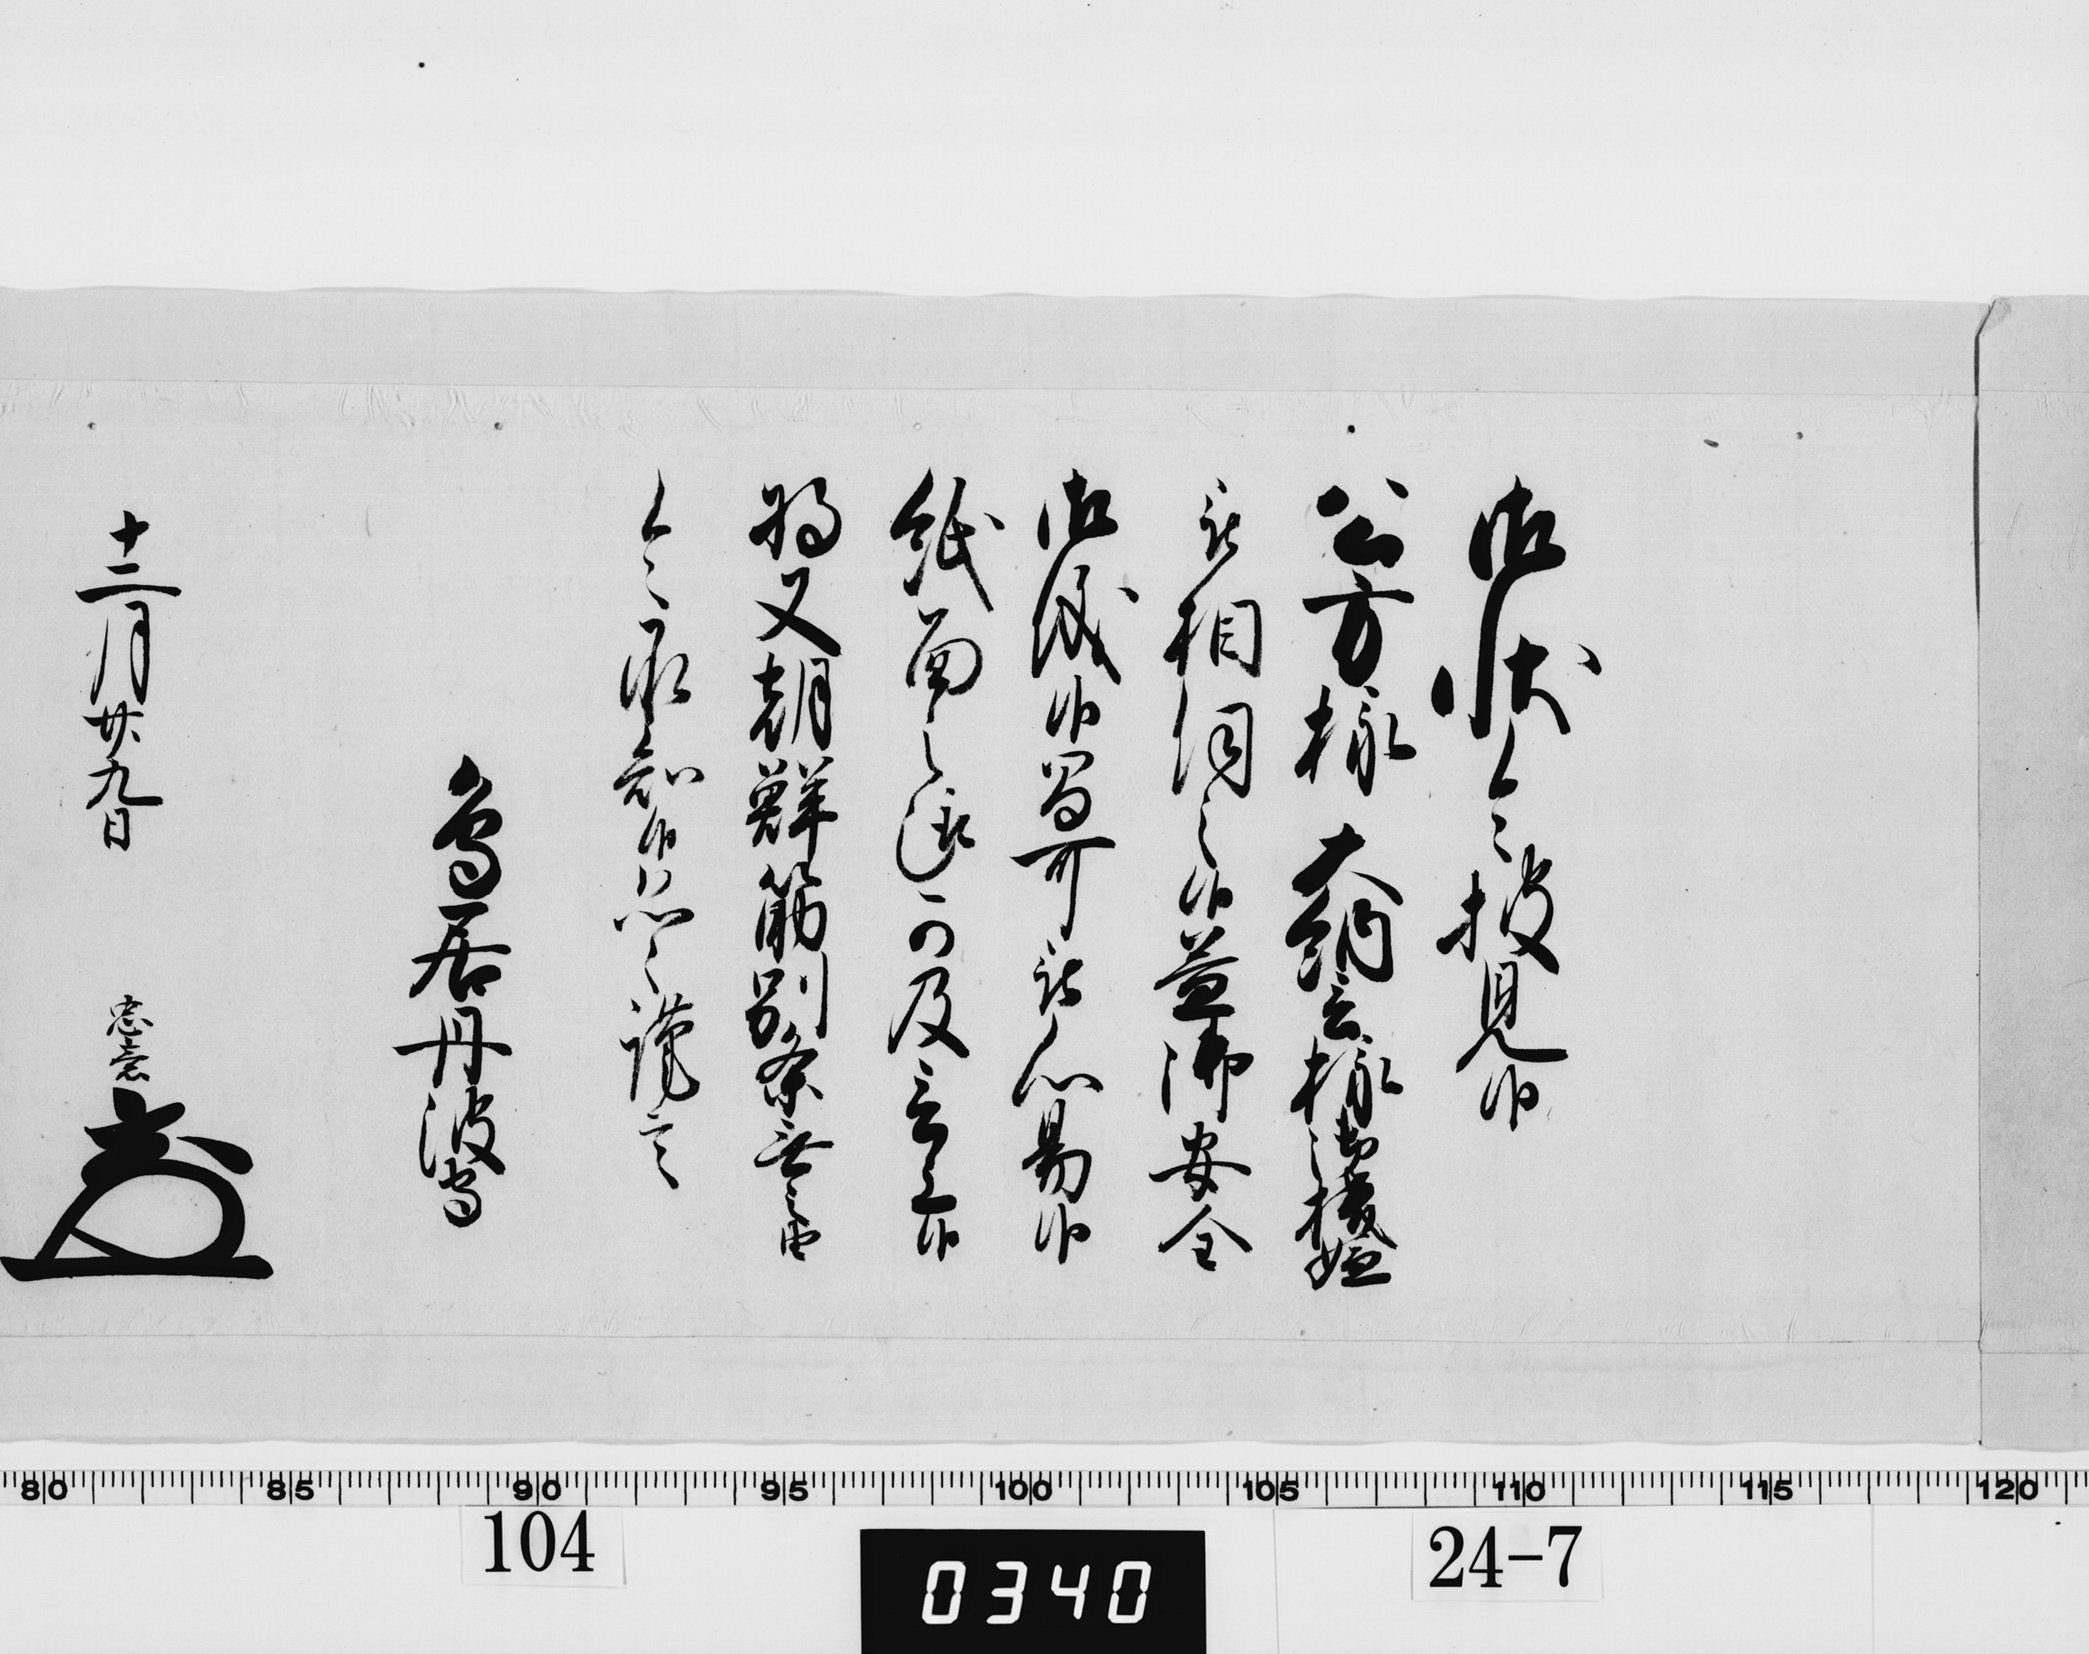 御状令披見候
公方様大納言様御機嫌
被相伺之候益御安全
御儀候間可被心易候
紙面之趣可及言上候
将又朝鮮筋別条無之由
令承知候恐々謹言
鳥居丹波守
十二月廿九日
忠意
80 85 90 95 100 105 110 115 120
104
0340
24-7